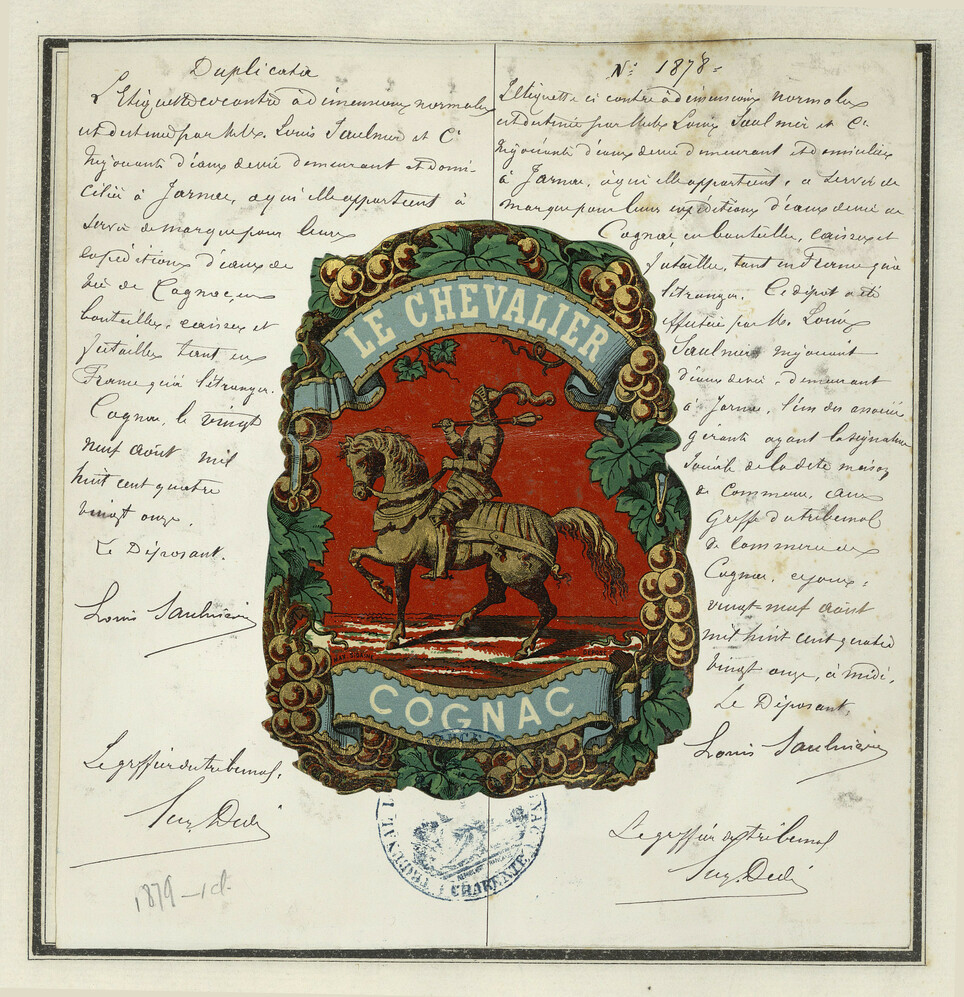 Duplicata
L'Etiquette ci contre à dimensions normales
est destinée par M. Louis Saulnier et Cie
Négociants d'eaux de vie demeurant et domi-
ciliés à Jarnac, à qui elle appartient à
servir de marque pour leurs
expéditions d'eaux de
vie de Cognac, en
bouteilles, caisses et
futailles tant en
France qu'à l'étranger.
Cognac, le vingt
neuf août mil
huit cent quatre
vingt onze.
Le Déposant.
Louis Saulnier
Le greffier du tribunal,
1879 - 1d.
No 1878 =
L'Etiquette ci contre à dimensions normales
est destinée par Louis Saulnier et Cie
Négociants d'eaux de vie demeurant et domiciliés
à Jarnac, à qui elle appartient, à servir de
marque pour leurs expéditions d'eaux de vie de
Cognac, en bouteilles, caisses et
futailles, tant en France qu'à
l'étranger. Ce dépôt a été
effectué par M. Louis
Saulnier négociant
d'eaux de vie, demeurant
à Jarnac, l'un des associés
gérants ayant la signature
sociale de la dite maison
de Commerce, au
Greffe du tribunal
de Commerce de
Cognac, ce jour,
vingt-neuf août
mil huit cent quatre
vingt onze, à midi,
Le Déposant,
Louis Saulnier
Le greffier du tribunal
LE CHEVALIER
COGNAC
CHARENTE